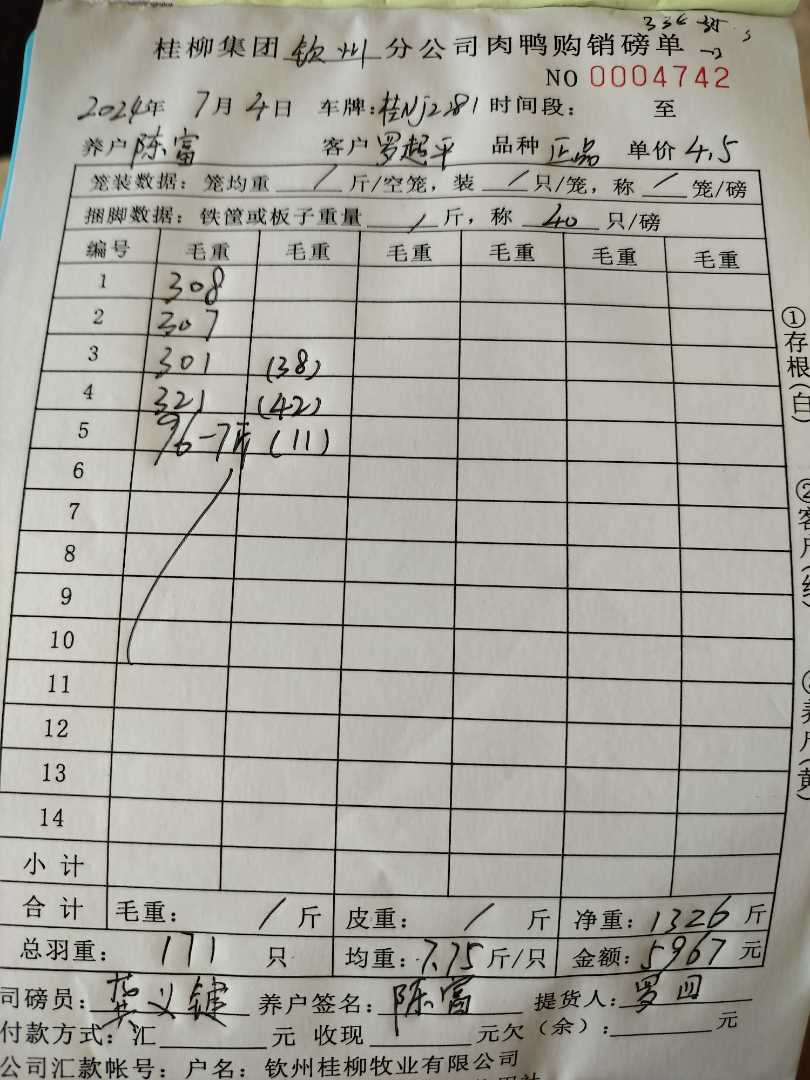 桂柳集团 钦州 分公司肉鸭购销磅单
NO 0004742
2024年 7月 4日 车牌:桂Nj2281 时间段: 至
养户 陈富 客户 罗超平 品种 正品 单价 4.5
笼装数据: 笼均重 / 斤/空笼, 装 / 只/笼, 称 / 笼/磅
捆脚数据: 铁筐或板子重量 / 斤, 称 40 只/磅
编号 毛重 毛重 毛重 毛重 毛重 毛重
1 308
2 307
3 301 (38)
4 321 (42)
5 96-7斤 (11)
6
7
8
9
10
11
12
13
14
小计
合计 毛重: / 斤 皮重: / 斤 净重: 1326 斤
总羽重: 171 只 均重: 7.75 斤/只 金额: 5967 元
司磅员: 龚义键 养户签名: 陈富 提货人: 罗四
付款方式: 汇 元 收现 元欠(余): 元
公司汇款帐号: 户名: 钦州桂柳牧业有限公司
①存根(白)
②客户(红)
③养户(黄)